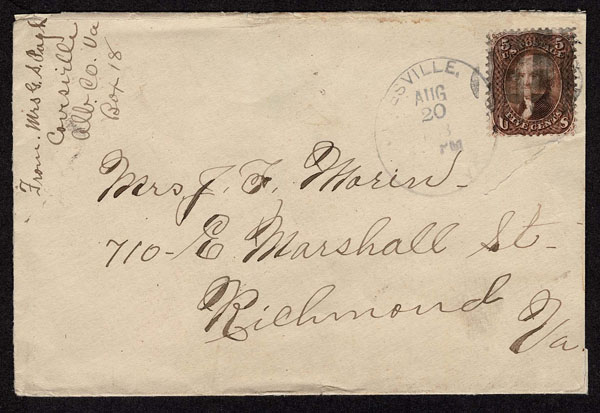 From. Mrs G. S. Pugh
Covesville
Alb. Co. Va
Box 18
ESVILLE,
AUG
20
PM
5 5
U S
FIVE CENTS
Mrs J. F. Morin-
710- E Marshall St-
Richmond
Va.